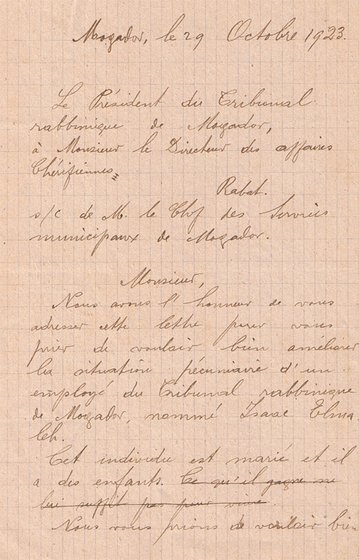 Mogador, le 29 Octobre 1923.
Le Président du Tribunal
rabbinique de Mogador,
à Monsieur le Directeur des affaires
Chérifiennes
Rabat.
s/c de M. le Chef des Services
municipaux de Mogador.
Monsieur,
Nous avons l'honneur de vous
adresser cette lettre pour vous
prier de vouloir bien améliorer
la situation pécuniaire d'un
employé du Tribunal rabbinique
de Mogador, nommé Isaac Elma
leh.
Cet individu est marié et il
a des enfants. Ce qu'il gagne ne
lui suffit pas pour vivre.
Nous vous prions de vouloir bien